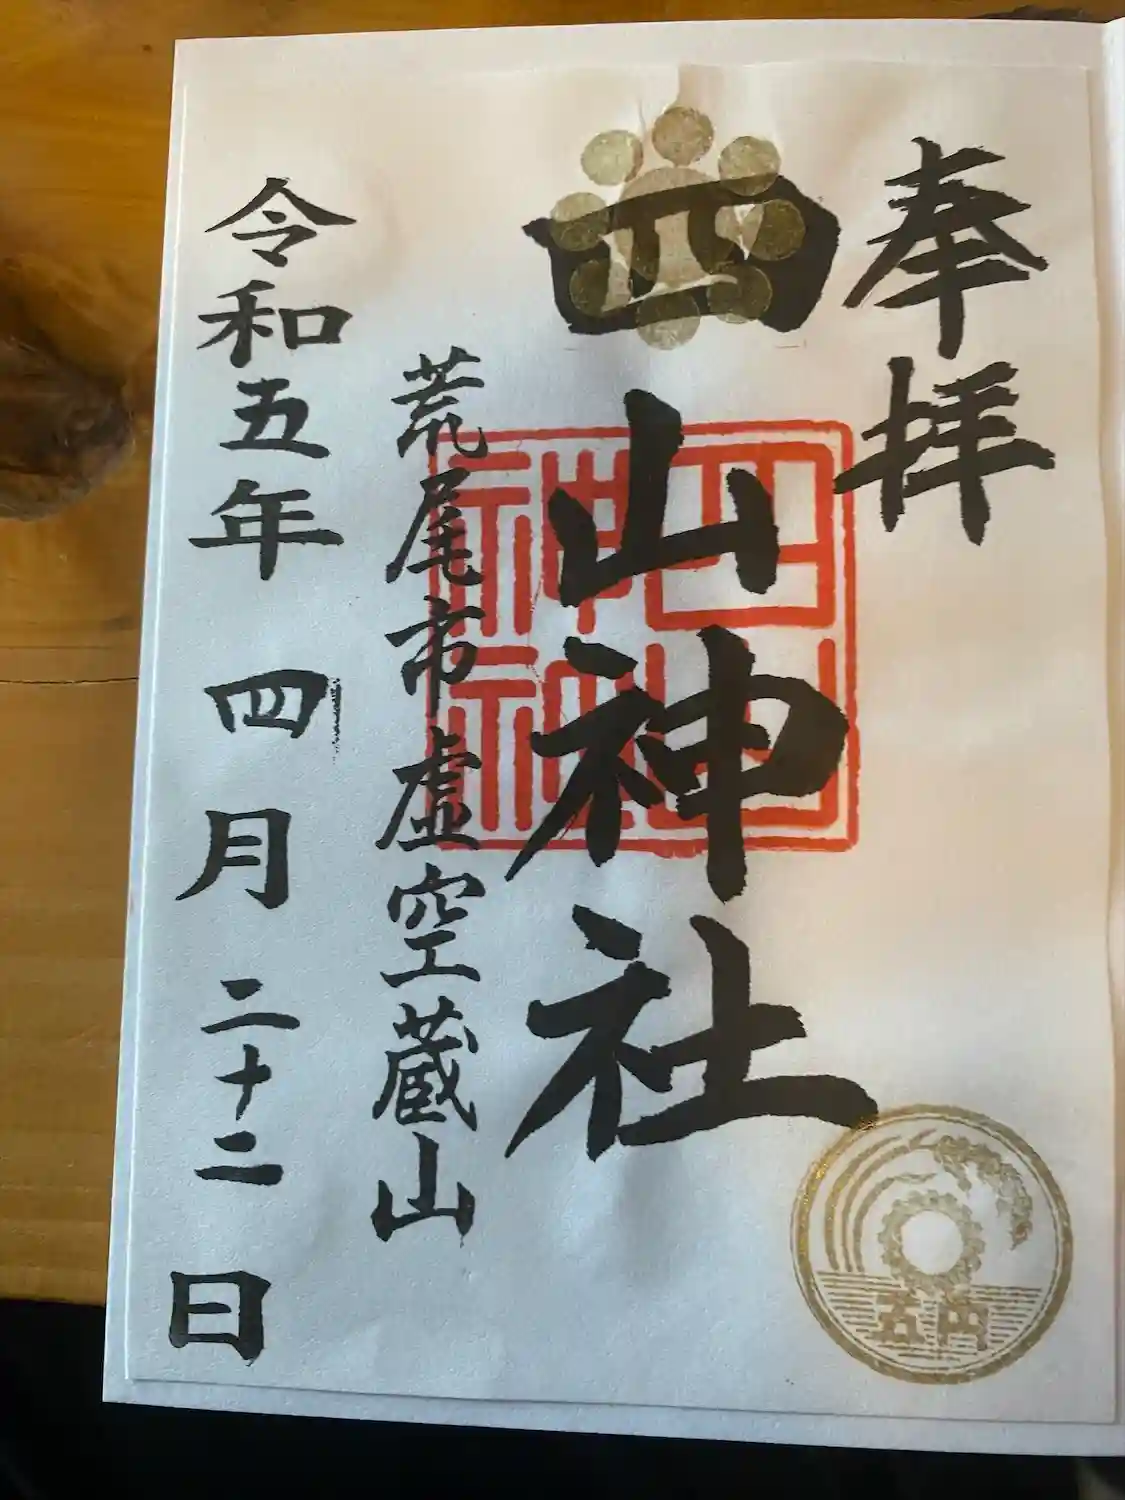 奉拝
四山神社
四山
神社
荒尾市虚空蔵山
令和五年四月二十二日
五円